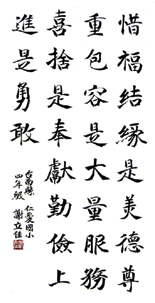 惜福結緣是美德尊
重包容是大量服務
喜捨是奉獻勤儉上
進是勇敢
台南縣 仁愛國小
四年級 謝立佳